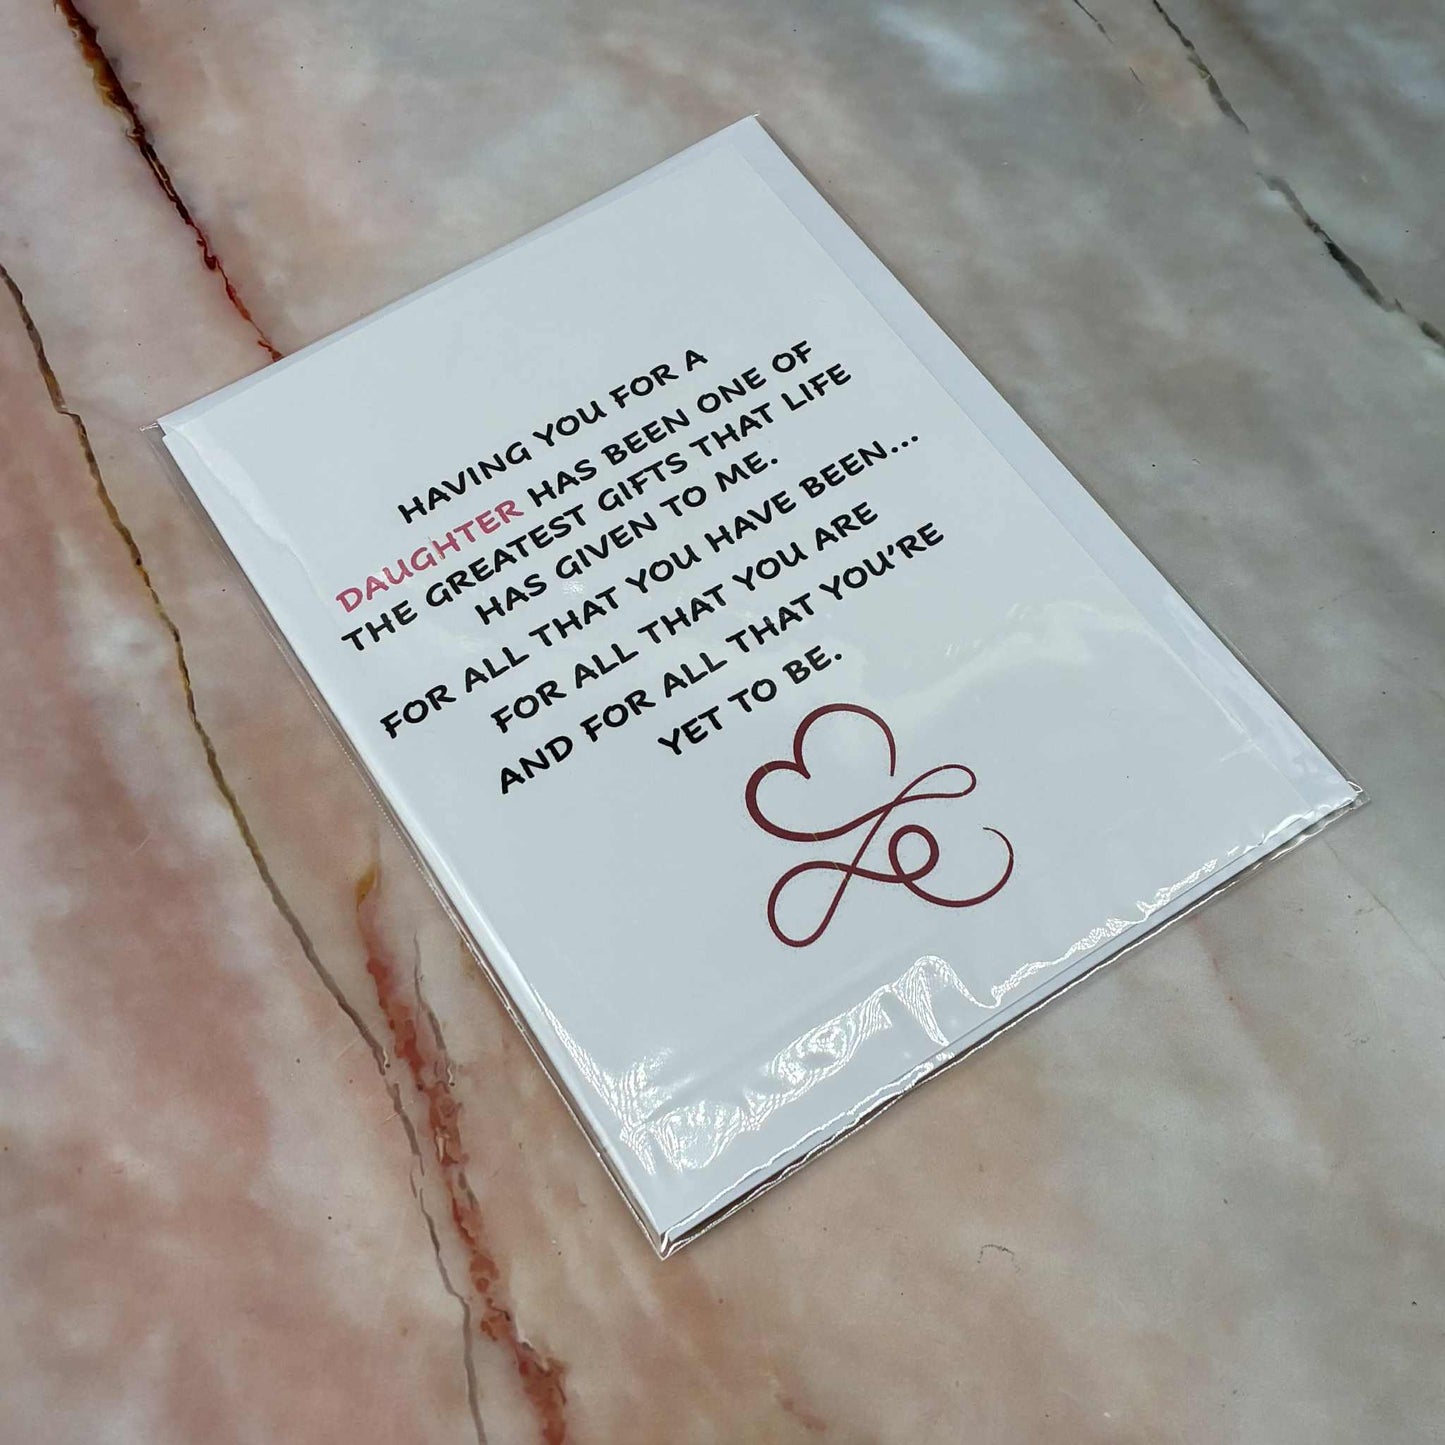 HAVING YOU FOR A
DAUGHTER HAS BEEN ONE OF
THE GREATEST GIFTS THAT LIFE
HAS GIVEN TO ME.
FOR ALL THAT YOU HAVE BEEN...
FOR ALL THAT YOU ARE
AND FOR ALL THAT YOU'RE
YET TO BE.